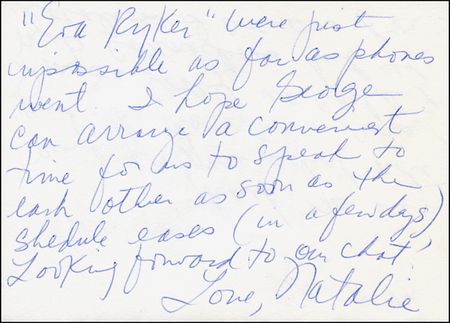 "Eva Ryker" were just
impossible as far as phones
went. I hope George
can arrange a convenient
time for us to speak to
each other as soon as the
shedule eases (in a few days)
Looking forward to our chat!
Love, Natalie